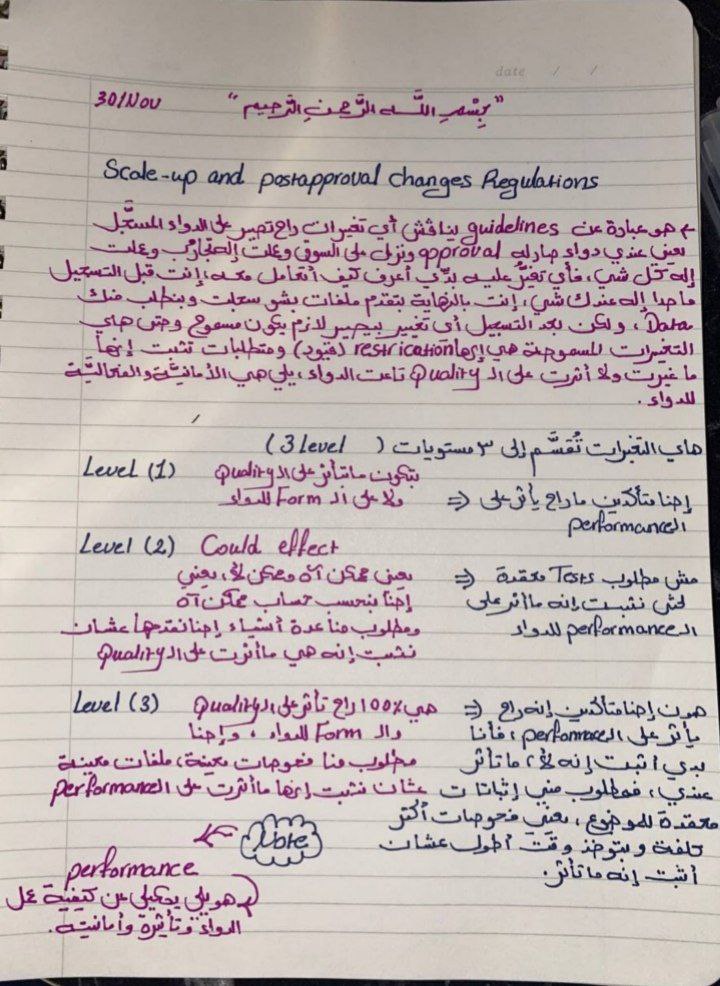 date / /
30/Nov "بِسْمِ اللَّهِ الرَّحْمنِ الرَّحِيم"
Scale-up and postapproval changes Regulations
هو عبارة عن guidelines يناقش أي تغيرات راح تصير على الدواء المسجَّل
يعني عندي دواء صار له approval ونزل على السوق وعملت إله تجارب وعملت
إله كل شي، فأي تغيُّر عليه بدّي أعرف كيف أتعامل معه، إنت قبل التسجيل
ما حدا إله عندك شي، إنت بالنهاية بتقدم ملفات بشو سجلت وبنطلب منك
Data، ولكن بعد التسجيل أي تغيير بيصير لازم يكون مسموح وحتى هاي
التغيرات المسموحة هي إلها restrication (قيود) ومتطلبات تثبت إنها
ما غيرت ولا أثرت على الـ Quality تاعت الدواء، يلي هي الأمانيَّة والفعاليَّة
للدواء.
هاي التغيرات تُقسَّم إلى ٣ مستويات (3 level)
Level (1) بتكون ماتأثر على الـ Quality
ولا على الـ Form للدواء
⇐ إحنا متأكدين ما راح يأثر على
الـ performance
Level (2) Could effect
يعني ممكن آه وممكن لأ، يعني
إحنا بنحسب حساب ممكن آه
ومطلوب منا عدة أشياء إحنا نقدمها عشان
نثبت إنه هي ما أثرت على الـ Quality
⇐ مش مطلوب Tests معقدة
لحتى نثبت إنه ما أثر على
الـ performance للدواء
Level (3) هي 100% راح تأثر على الـ Quality
والـ Form للدواء، وإحنا
مطلوب منا فحوصات معينة، ملفات معينة
عشان نثبت إنها ما أثرت على الـ performance
⇐ هون إحنا متأكدين إنه راح
يأثر على الـ performance، فأنا
بدي أثبت إنه لأ، ما تأثر
عندي، فمطلوب مني إثباتات
معقدة للموضوع، يعني فحوصات أكتر
تكلفة وبتوخذ وقت أطول عشان
أثبت إنه ما تأثر.
Note
performance
هو يلي بحكيلي عن كيفية عمل
الدواء وتأثيرة وأمانيته.